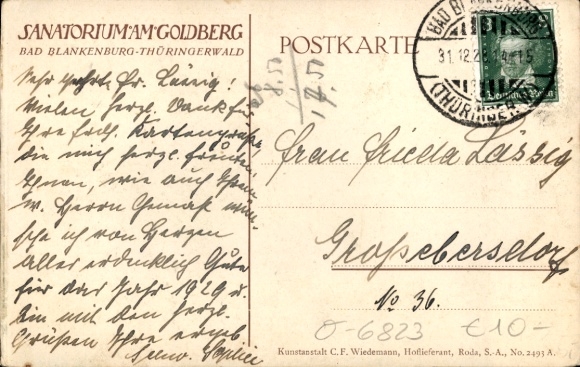 SANATORIUM•AM•GOLDBERG
BAD BLANKENBURG-THÜRINGERWALD
Sehr geehrte Fr. Lässig!
Vielen herzl. Dank für
Ihre frdl. Kartengrüße,
die mich herzl. freuten.
Ihnen, wie auch Ihrem
w. Herrn Gemahl wün-
sche ich von Herzen
alles erdenklich Gute
für das Jahr 1929 u.
bin mit den herzl.
Grüßen Ihre ergeb.
POSTKARTE
8.50
17.50
BAD BLANKENBURG
31.12.28.14-15
(THÜRINGER W.)
Deutsches Reich
Frau Frieda Lässig
Großebersdorf
No 36.
O-6823 €10-
Kunstanstalt C. F. Wiedemann, Hoflieferant, Roda, S.-A., No. 2493 A.